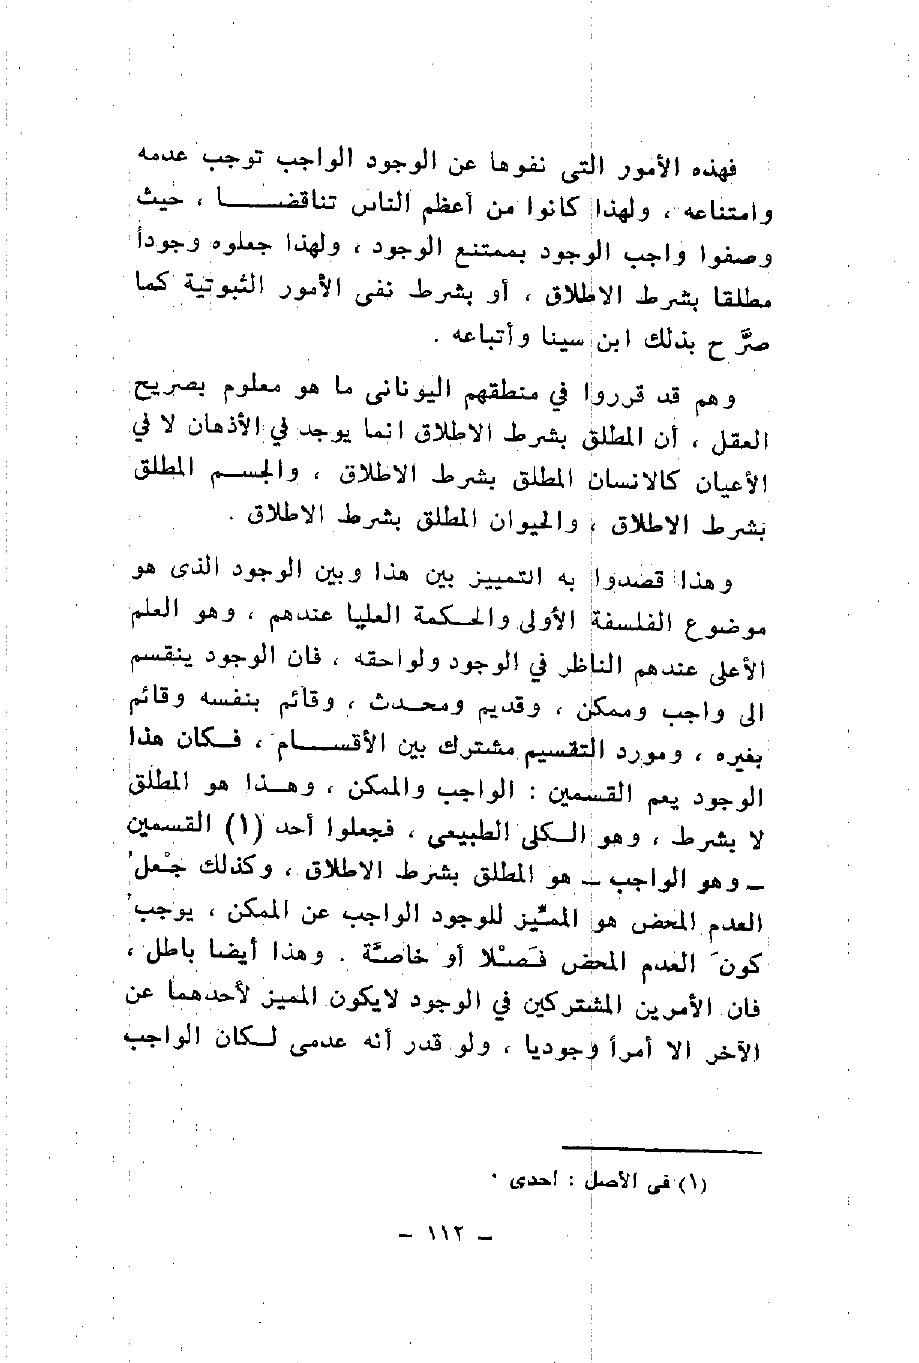 فهذه الأمور التى نفوها عن الوجود الواجب توجب عدمه
وامتناعه ، ولهذا كانوا من أعظم الناس تناقضـــــا ، حيث
وصفوا واجب الوجود بممتنع الوجود ، ولهذا جعلوه وجوداً
مطلقا بشرط الاطلاق ، أو بشرط نفى الأمور الثبوتية كما
صرَّح بذلك ابن سينا وأتباعه .
وهم قد قرروا في منطقهم اليونانى ما هو معلوم بصريح
العقل ، أن المطلق بشرط الاطلاق انما يوجد في الأذهان لا في
الأعيان كالانسان المطلق بشرط الاطلاق ، والجســم المطلق
بشرط الاطلاق ، والحيوان المطلق بشرط الاطلاق .
وهذا قصدوا به التمييز بين هذا وبين الوجود الذى هو
موضوع الفلسفة الأولى والحـكمة العليا عندهم ، وهو العلم
الأعلى عندهم الناظر في الوجود ولواحقه ، فان الوجود ينقسم
الى واجب وممكن ، وقديم ومحــدث ، وقائم بنفسه وقائم
بغيره ، ومورد التقسيم مشترك بين الأقســـام ، فـكان هذا
الوجود يعم القسمين : الواجب والممكن ، وهــذا هو المطلق
لا بشرط ، وهو الـكلى الطبيعى ، فجعلوا أحد (١) القسمين
ــ وهو الواجب ــ هو المطلق بشرط الاطلاق ، وكذلك جعْلُ
العدم المحض هو المميِّز للوجود الواجب عن الممكن ، يوجبُ
كونَ العدم المحض فَصْلا أو خاصَّة . وهذا أيضا باطل ،
فان الأمرين المشتركين في الوجود لايكون المميز لأحدهما عن
الآخر الا أمراً وجوديا ، ولو قدر أنه عدمى لـكان الواجب
(١) فى الأصل : احدى .
ــ ١١٢ ــ